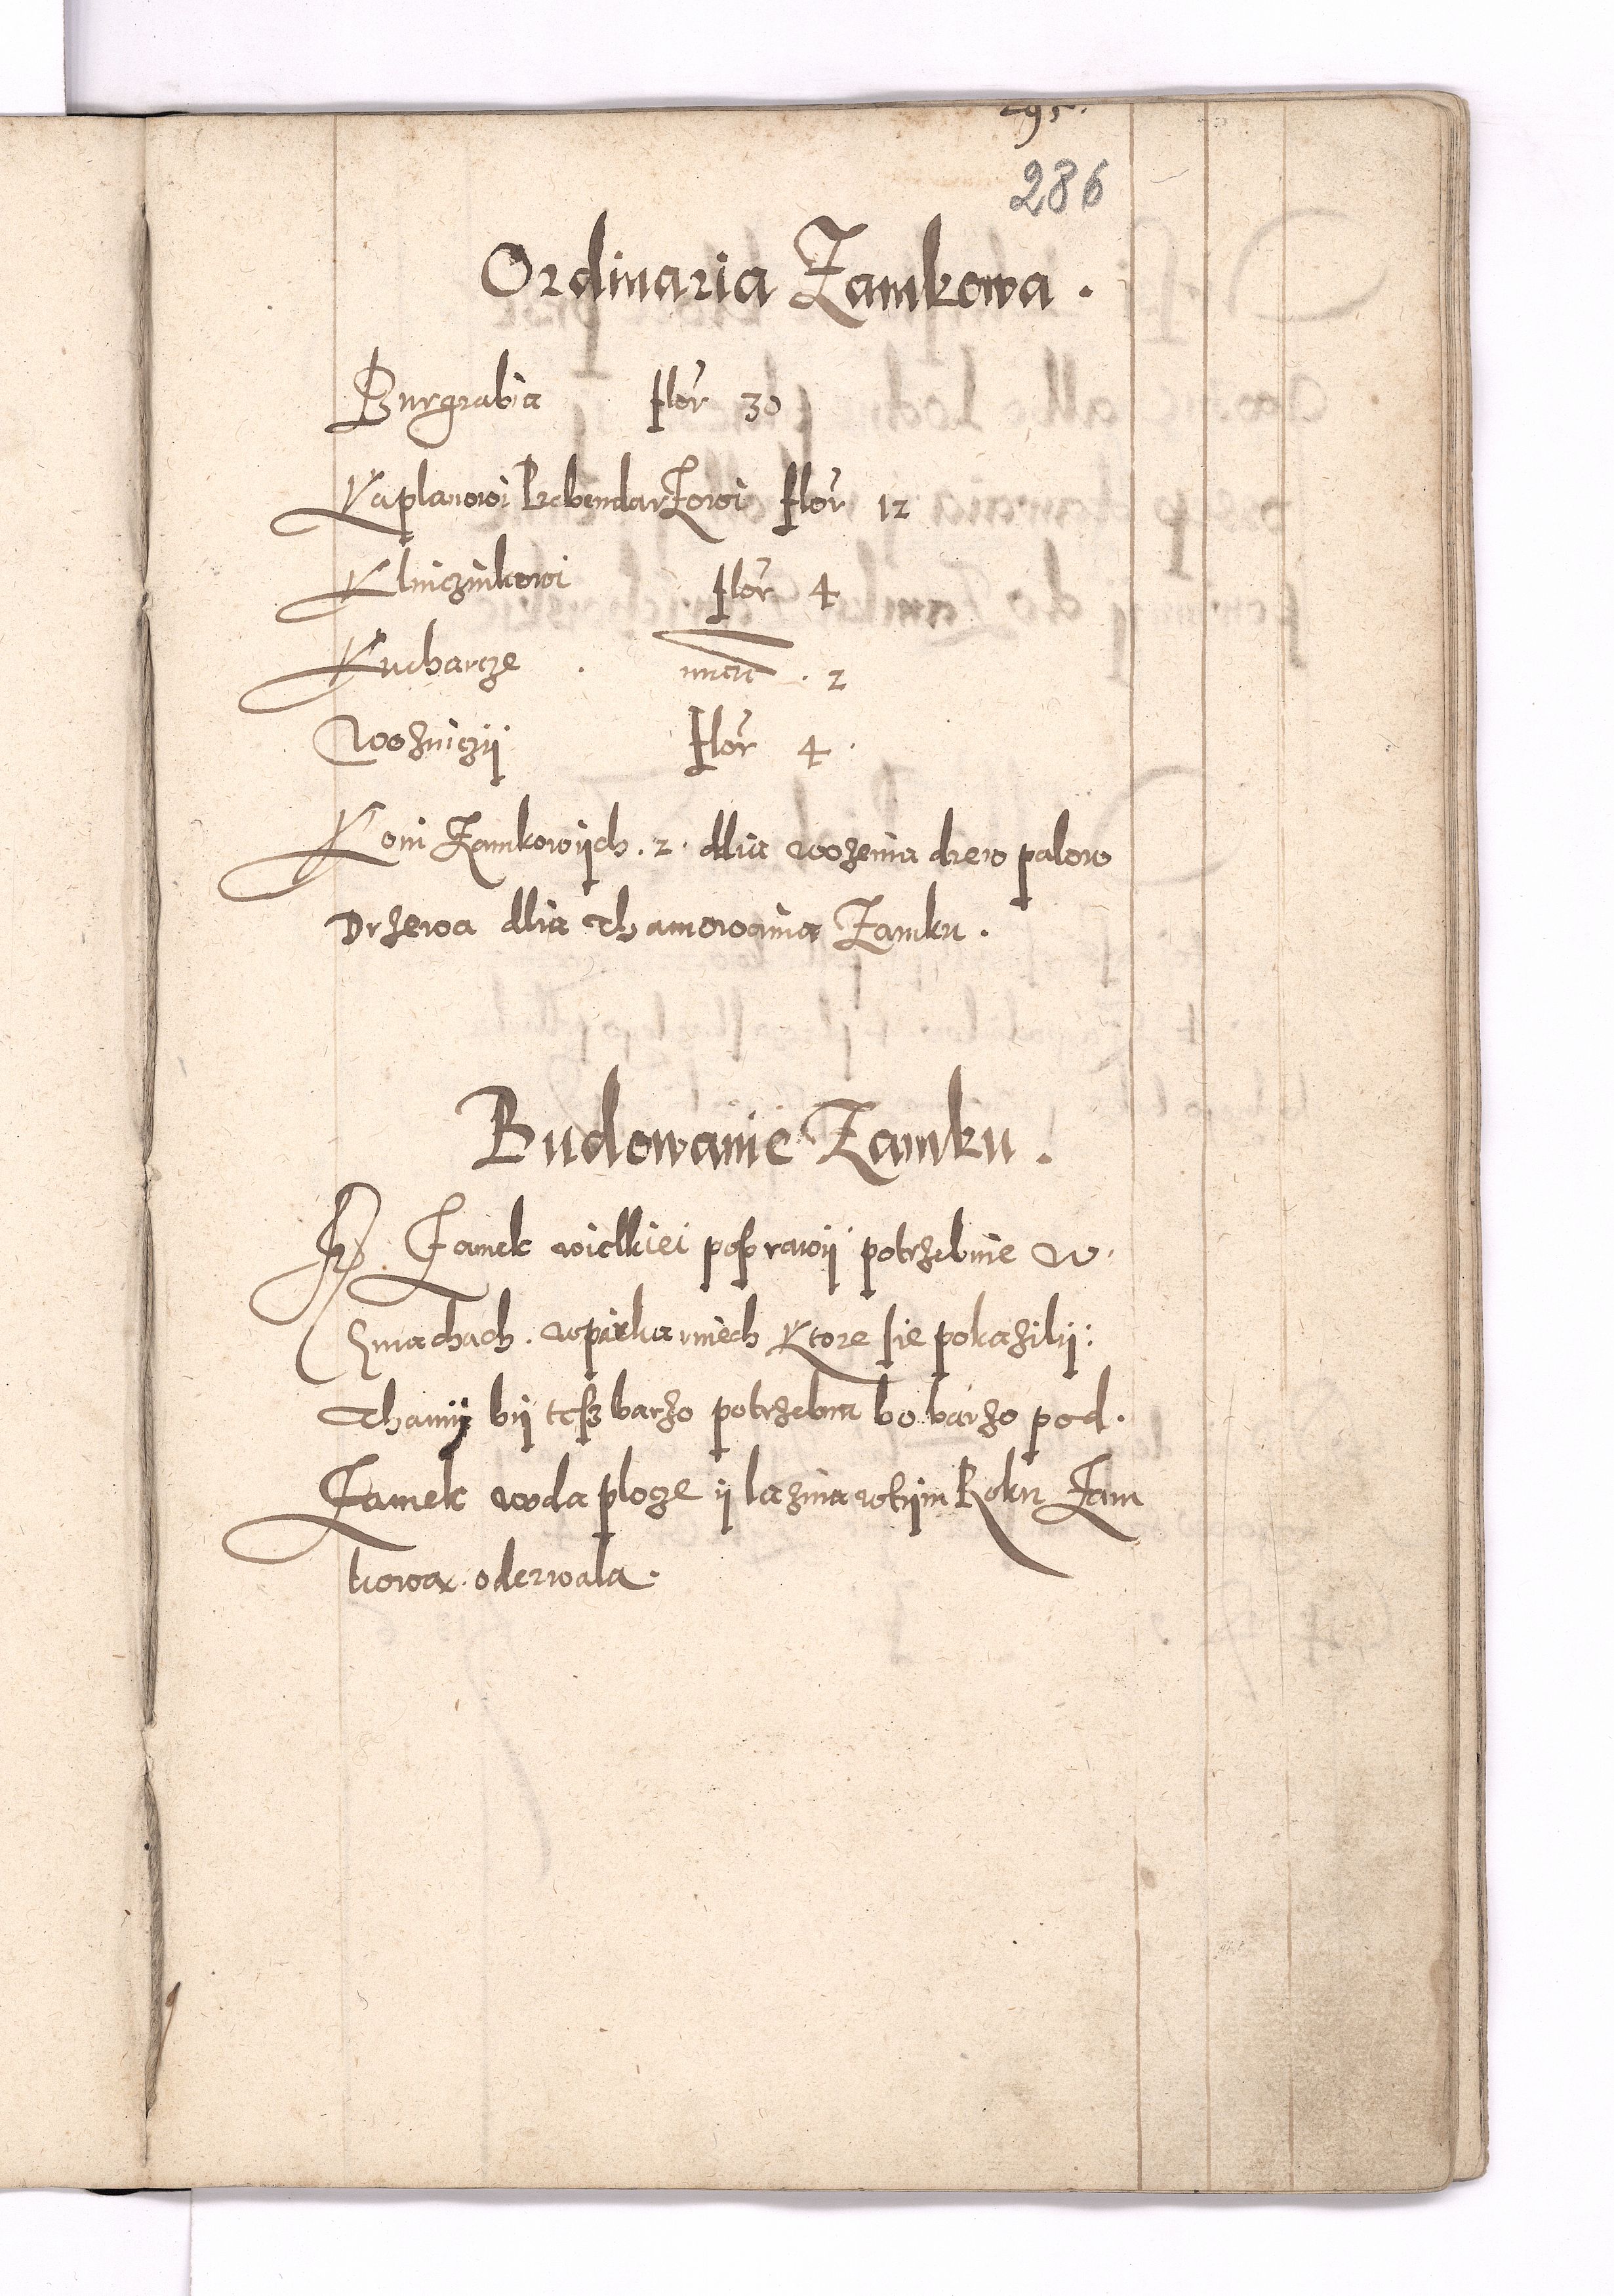 295.
286
Ordinaria Zamkowa.
Burgrabia flor 30
Kaplanowi Prebendarzowi flor 12
Klnicznikowi flor 4
Kucharze . 2
Wozniczÿ flor 4.
Koni Zamkowÿch . 2 . dlia wozenia drew palow
Drzewa dlia Thamowania Zamku.
Budowanie Zamku.
Zamek wielkiei poprawÿ potrzebuie w.
Gmachach. wpiekarniech Ktore sie pokazilÿ:
Thamÿ bÿ tesz barzo potrzebna bo barzo pod.
Zamek woda ploze ÿ laznia wtÿm Roku Zam
kowa. oderwala.